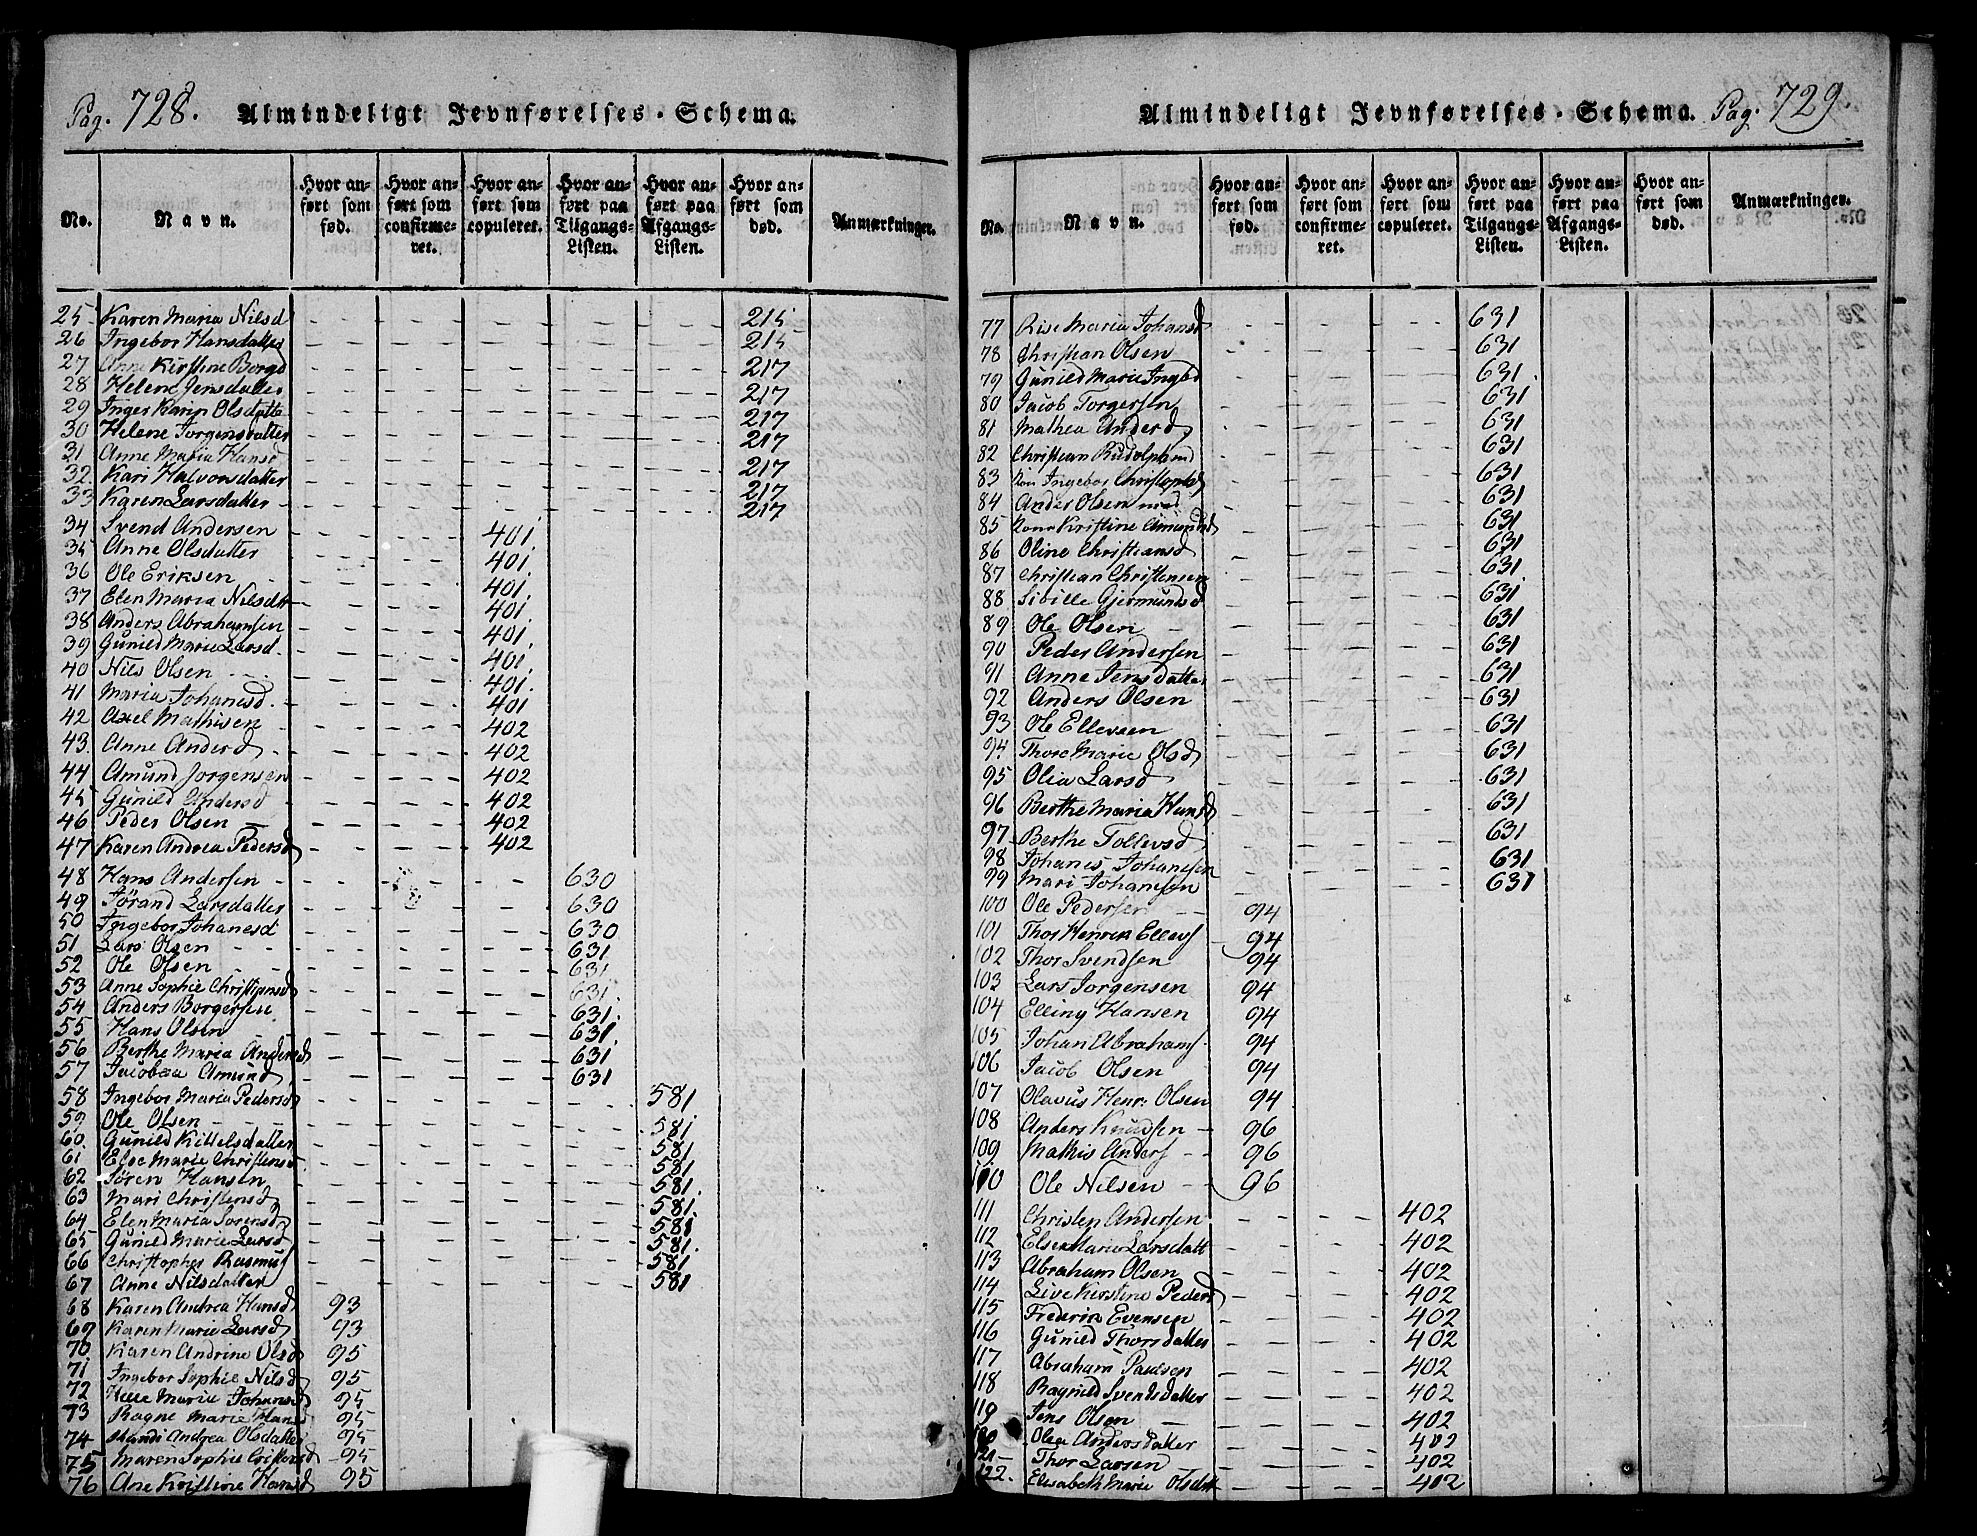 Pag. 728. Almindeligt Jevnførelses-Schema.
No. Navn. Hvor anført som fød. Hvor anført som confirmeret. Hvor anført som copuleret. Hvor anført paa Tilgangs-Listen. Hvor anført paa Afgangs-Listen. Hvor anført som død. Anmærkninger.
25 Karen Maria Nilsd 215
26 Ingebor Hansdatter 215
27 Anne Kirstine Borgd 217
28 Helene Jensdatter 217
29 Inger Karin Olsdatte 217
30 Helene Jorgensdatter 217
31 Anne Maria Hansd 217
32. Kari Halvorsdatter 217
33 Karen Larsdatter 217
34 Svend Andersen 401.
35 Anne Olsdatter 401.
36 Ole Eriksen 401.
37 Elen Maria Nilsdtr 401.
38 Anders Abrahamsen 401.
39 Gunild Marie Larsd. 401.
40 Nils Olsen 401.
41 Maria Johanesd. 401
42 Axel Mathisen 402
43. Anne Anderd 402
44 Amund Jorgensen 402
45 Gunild Andersd 402
46 Peder Olsen 402
47 Karen Andrea Pedersd 402
48 Hans Andersen 630
49 Jørand Larsdatter 630
50 Ingebor Johanesd 630
51 Lars Olsen 631
52 Ole Olsen 631
53 Anne Sophie Christiansd 631.
54 Anders Borgersen 631.
55 Hans Olsen 631.
56 Berthe Maria Andersd 631
57 Jacobæa Amund 631
58 Ingebor Maria Pedersd 581
59 Ole Olsen 581
60. Gunild Kittelsdatter 581
61 Else Marie Christensd 581
62 Sören Hansen 581.
63 Mari Christensd 581.
64 Elen Maria Sorensd 581
65 Gunild Marie Larsd 581.
66 Christopher Rasmus 581
67 Anne Nilsdatter 581
68 Karen Andrea Hansd 93
69 Karen Marie Larsd 93
70 Karen Andrine Olsd 95
71 Ingebor Sophie Nilsd 95
72 Marie Johansd 95
73 Ragne Marie Hansd 95
74 Andrea Olsdatter 95
75 Maren Sophie 95
76 Ane Kristine Hansd 95
Almindeligt Jevnførelses-Schema. Pag. 729.
No. Navn. Hvor anført som fød. Hvor anført som confirmeret. Hvor anført som copuleret. Hvor anført paa Tilgangs-Listen. Hvor anført paa Afgangs-Listen. Hvor anført som død. Anmærkninger.
77 Rise Maria Johansd 631
78 Christian Olsen 631
79 Gunild Marie Ingbd 631.
80 Jacob Torgersen 631
81 Mathea Anderd 631
82 Christian Rudolph 631
83 Ingebor Christophd 631
84 Ander Olsen med 631
85 Kona Kirstine Amundsd 631
86 Oline Christiansd 631
87 Christian Christensen 631
88 Sibille Gjermundsd 631
89 Ole Olsen 631
90 Peder Andersen 631
91 Anne Jensdatter 631
92 Anders Olsen 631
93 Ole Ellevsen 631
94. Thore Marie Olsd 631
95 Olia Larsd 631
96 Berthe Maria Hansd 631
97 Berthe Tollevsd 631
98 Johanes Johannsen 631
99 Mari Johansen 631
100 Ole Pedersen 94
101 Thor Henrik Ellevs 94
102 Thor Svendsen 94
103 Lars Jorgensen 94
104 Elling Hansen 94
105 Johan Abrahams 94
106 Jacob Olsen 94
107 Olavus Henr: Olsen 94
108 Anders Knudsen 96
109 Mathis Anders 96
110 Ole Nilsen 96
111 Christen Andersen 402
112 Else Marie Larsdatt 402
113 Abraham Olsen 402
114 Live Kirstine Pederd 402
115 Frederik Evensen 402
116 Gunild Thorsdatter 402
117 Abraham Paulsen 402
118 Ragnild Svendsdatter 402
119 Jens Olsen 402
120 Olea Andersdatter 402
121 Thor Larsen 402
122. Elisabeth Marie Olsdtt 402